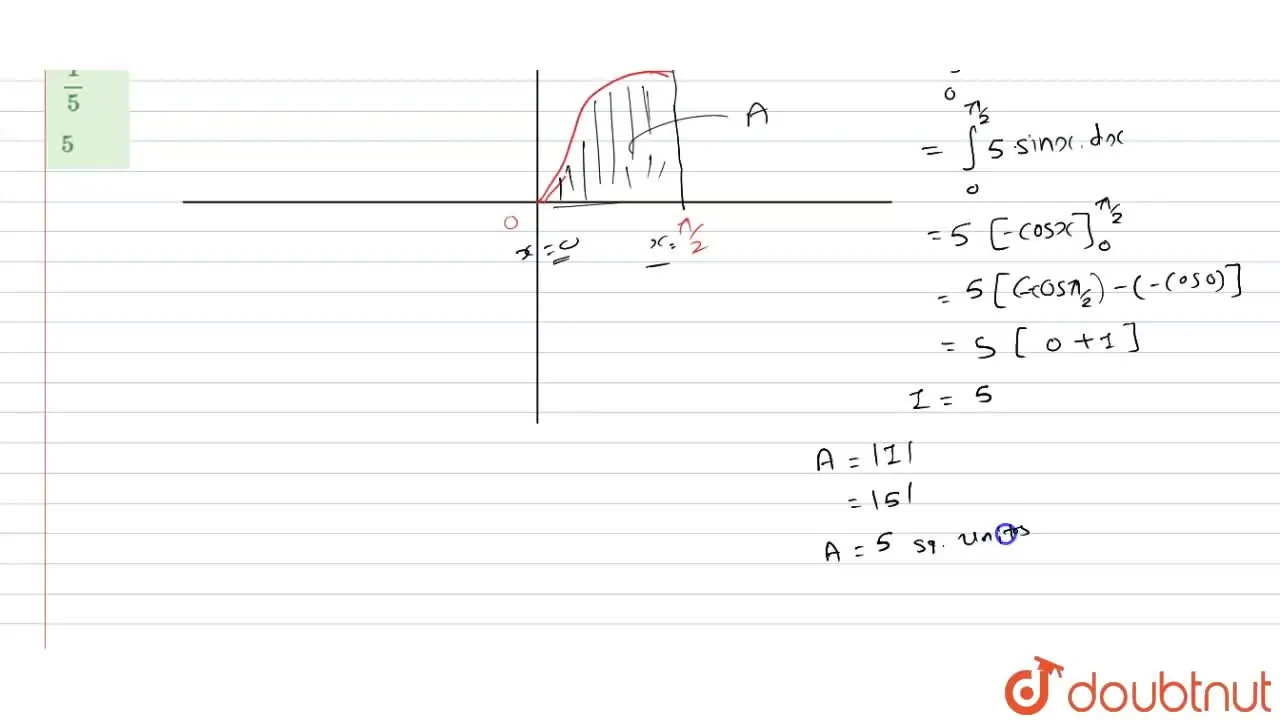 1/5
5
A
0
x = 0
x = π/2
0
= ∫₀^{π/2} 5·sinx.dx
= 5 [-cosx]₀^{π/2}
= 5[(-cosπ/2) - (-cos0)]
= 5 [ 0 + 1 ]
I = 5
A = |I|
= |5|
A = 5 sq. units
doubtnut